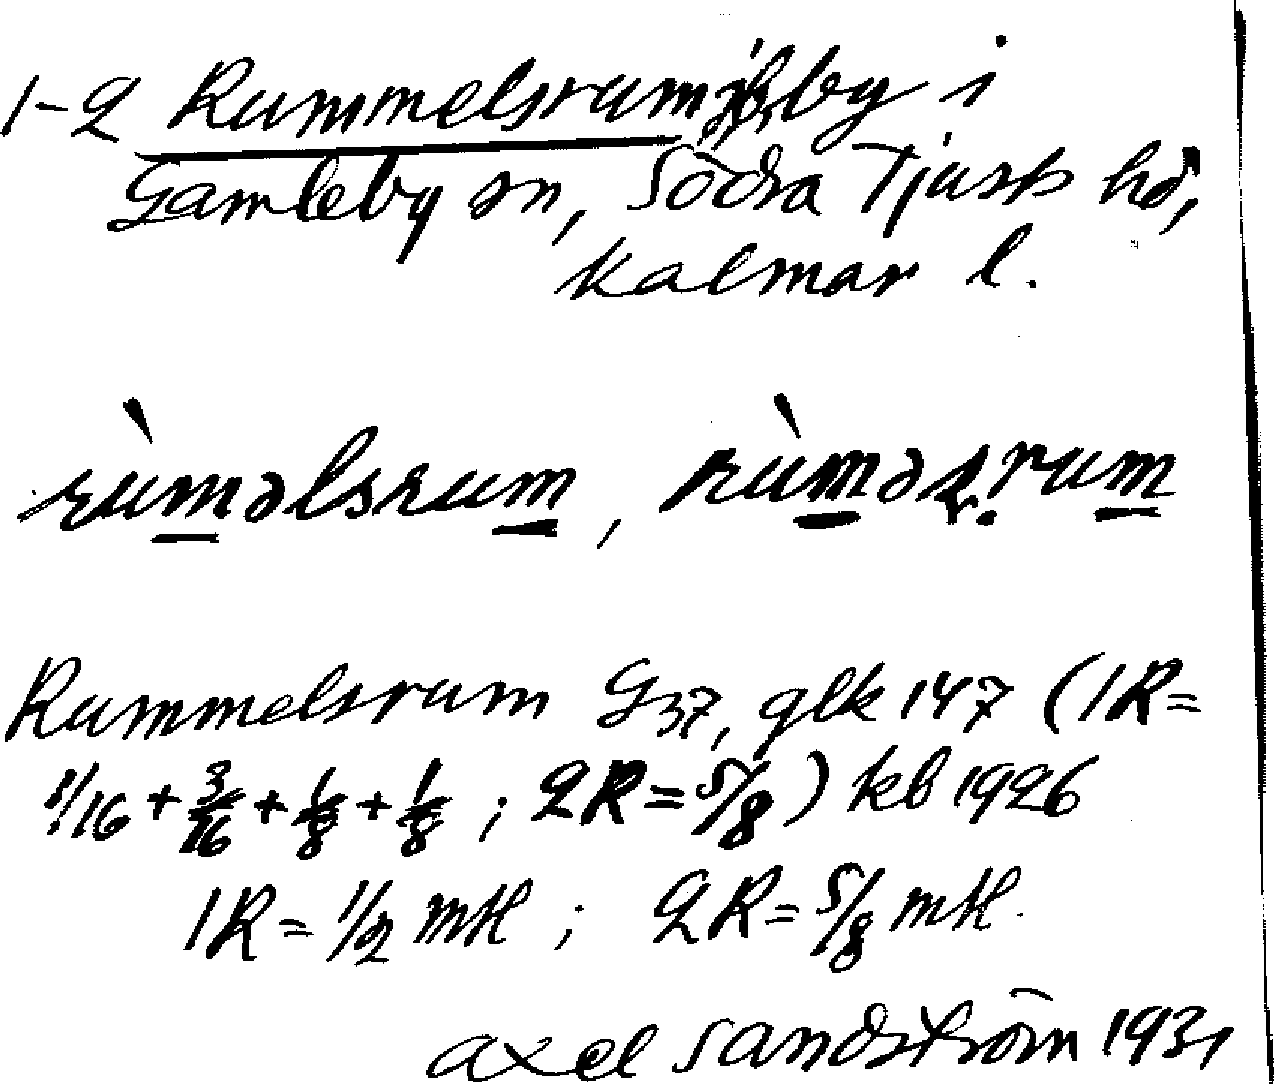 1-2 Rummelsrum, by i
Gamleby sn, Södra Tjusts hd,
Kalmar l.
rùməlsrum, rùməṣrum
Rummelsrum G37, glk 147 (1R=
1/16 + 3/16 + 1/8 + 1/8 ; 2R = 5/8) kb 1926
1R = 1/2 mtl ; 2R = 5/8 mtl.
Axel Sandström 1931